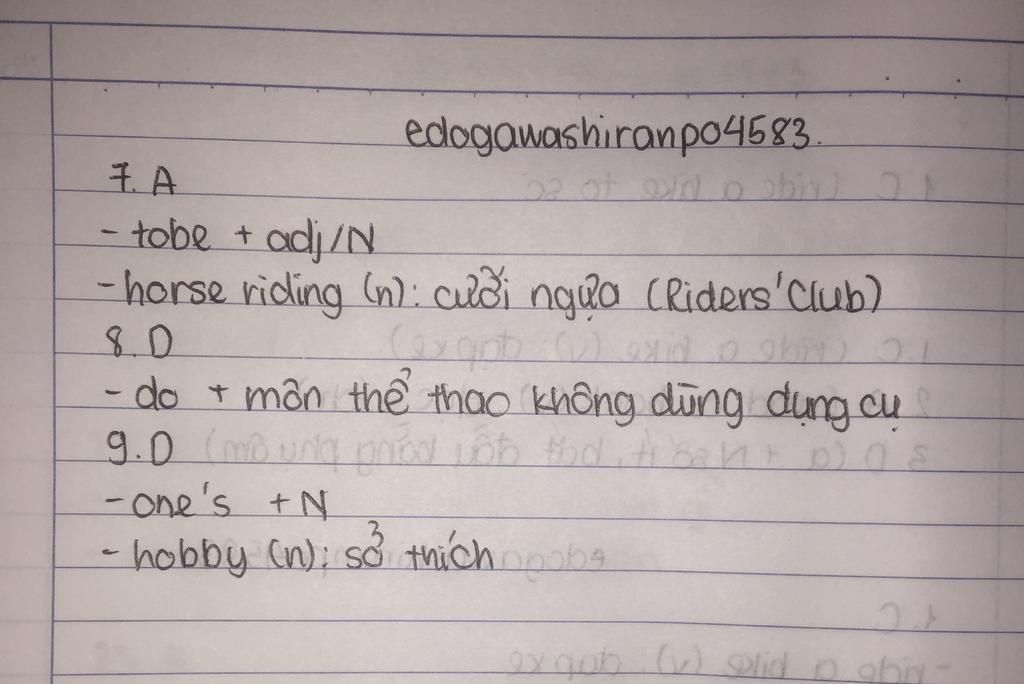 edogawashiranpo4583.
7. A
- tobe + adj/N
- horse riding (n): cưỡi ngựa (Riders' Club)
8. D
- do + môn thể thao không dùng dụng cụ
9. D
- one's + N
- hobby (n): sở thích